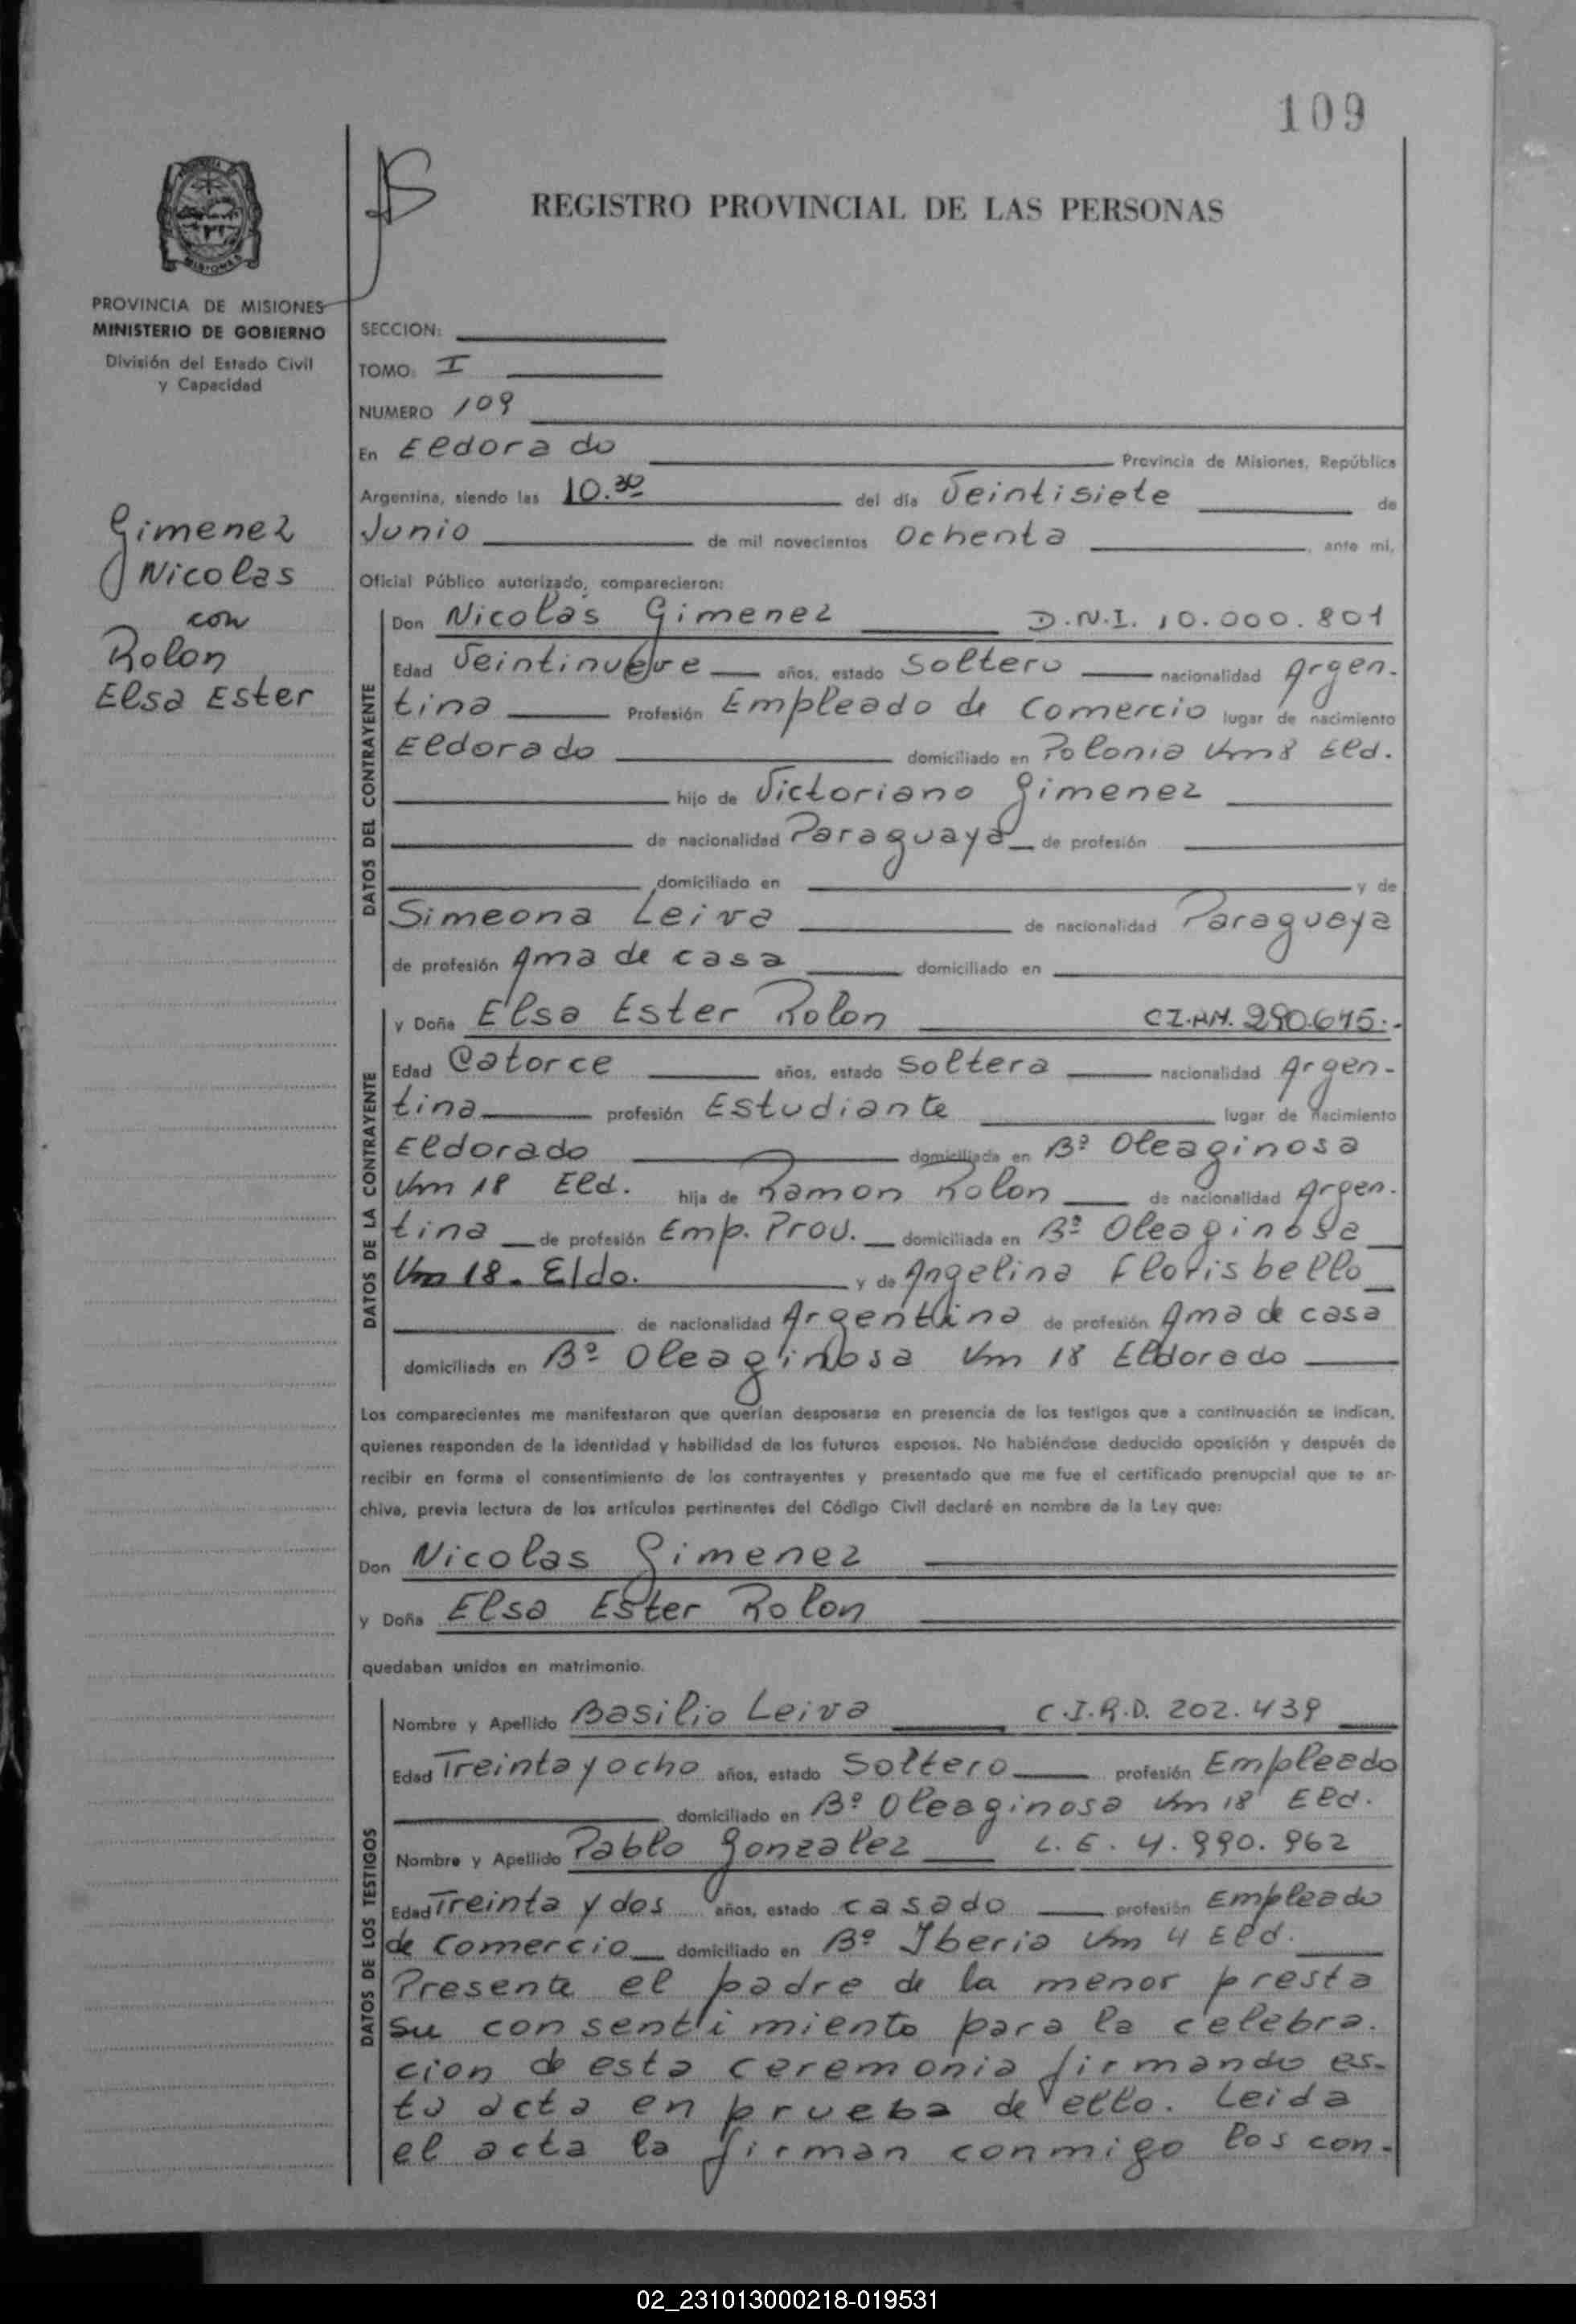 109
REGISTRO PROVINCIAL DE LAS PERSONAS
MISIONES
PROVINCIA DE MISIONES
MINISTERIO DE GOBIERNO
División del Estado Civil
y Capacidad
SECCION:
TOMO: I
NUMERO 109
En Eldorado Provincia de Misiones, República
Argentina, siendo las 10.30 del día Veintisiete de
Junio de mil novecientos Ochenta, ante mi,
Oficial Público autorizado, comparecieron:
Gimenez
Nicolas
con
Rolon
Elsa Ester
DATOS DEL CONTRAYENTE
Don Nicolas Gimenez D.N.I. 10.000.801
Edad Veintinueve años, estado Soltero nacionalidad Argen-
tina Profesión Empleado de Comercio lugar de nacimiento
Eldorado domiciliado en Polonia Km 8 Eld.
hijo de Victoriano Gimenez
de nacionalidad Paraguaya de profesión
domiciliado en y de
Simeona Leiva de nacionalidad Paraguaya
de profesión Ama de casa domiciliado en
DATOS DE LA CONTRAYENTE
y Doña Elsa Ester Rolon 
Edad Catorce años, estado Soltera nacionalidad Argen-
tina profesión Estudiante lugar de nacimiento
Eldorado domiciliada en Bº Oleaginosa
Km 18 Eld. hija de Ramon Rolon de nacionalidad Argen-
tina de profesión Emp. Prov. domiciliada en Bº Oleaginosa
Km 18. Eldo. y de Angelina Florisbello
de nacionalidad Argentina de profesión Ama de casa
domiciliada en Bº Oleaginosa Km 18 Eldorado
Los comparecientes me manifestaron que querían desposarse en presencia de los testigos que a continuación se indican,
quienes responden de la identidad y habilidad de los futuros esposos. No habiéndose deducido oposición y después de
recibir en forma el consentimiento de los contrayentes y presentado que me fue el certificado prenupcial que se ar-
chiva, previa lectura de los artículos pertinentes del Código Civil declaré en nombre de la Ley que:
Don Nicolas Gimenez
y Doña Elsa Ester Rolon
quedaban unidos en matrimonio.
DATOS DE LOS TESTIGOS
Nombre y Apellido Basilio Leiva 202.439
Edad Treinta y ocho años, estado Soltero profesión Empleado
domiciliado en Bº Oleaginosa Km 18 Eld.
Nombre y Apellido Pablo Gonzalez L.E. 4.990.962
Edad Treinta y dos años, estado casado profesión Empleado
de Comercio domiciliado en Bº Iberia Km 4 Eld.
Presente el padre de la menor presta
su consentimiento para la celebra-
cion de esta ceremonia firmando es-
ta acta en prueba de ello. Leida
el acta la firman conmigo los con-
02_231013000218-019531